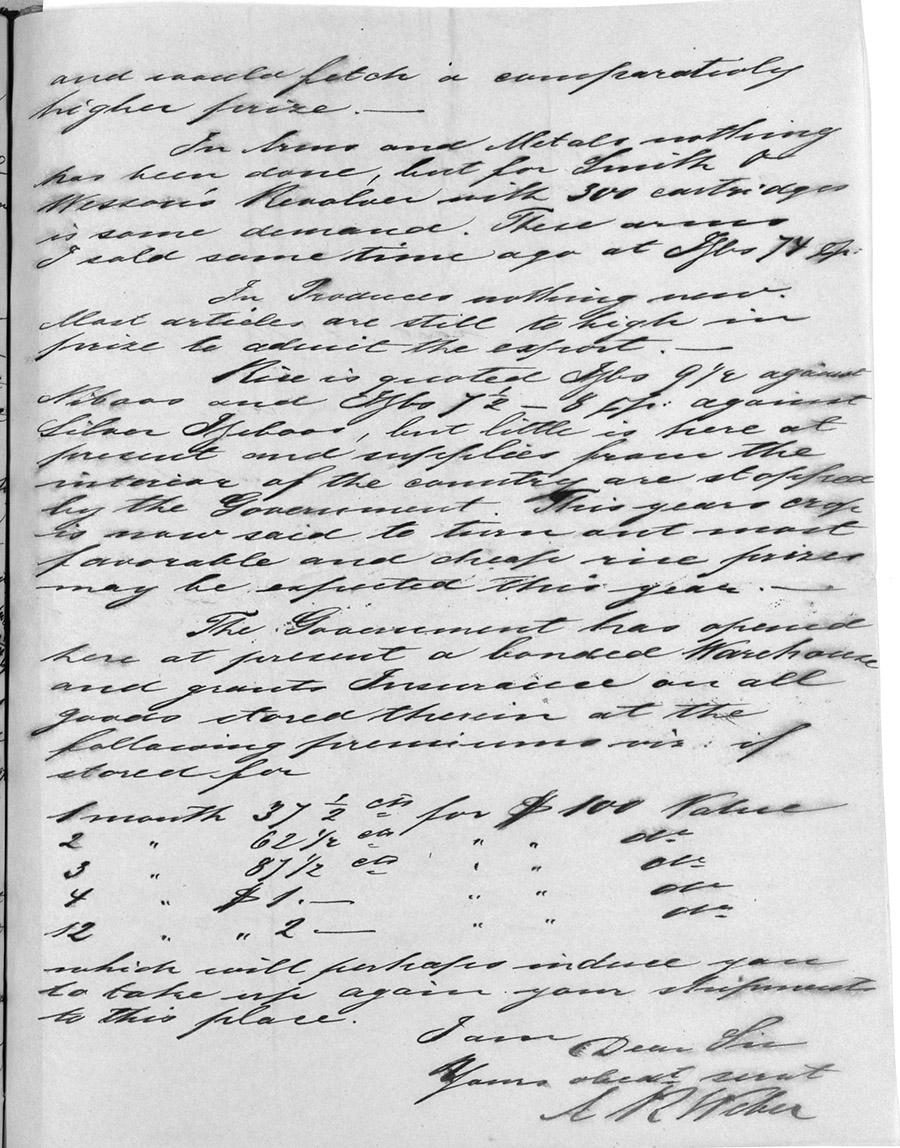 and would fetch a comparatively
higher prize. —
In Arms and Metals nothing
has been done, but for Smith &
Wesson's Revolver with 300 cartridges
is some demand. These arms
I sold some time ago at Itzbs 74 pp:
In Produces nothing new.
Most articles are still to high in
prize to admit the export. —
Rise is quoted Itzbs 9 1/2 against
Niboos and Itzbs 7 1/2 – 8 pp: against
Silver Itzeboos, but little is here at
present and supplies from the
interior of the country are stopped
by the Government. This years crop
is now said to turn out most
favorable and cheap rice prizes
may be expected this year. —
The Government has opened
here at present a bonded Warehouse
and grants Insurance on all
goods stored therein at the
following premiums viz: if
stored for
1 month 37 1/2 cts for $ 100 Value
2 " 62 1/2 cts " " do
3 " 87 1/2 cts " " do
4 " $ 1. — " " do
12 " " 2 — " " do
which will perhaps induce you
to take up again your shipment
to this place.
I am
Dear Sir
Yours obedt servt
A R Weber